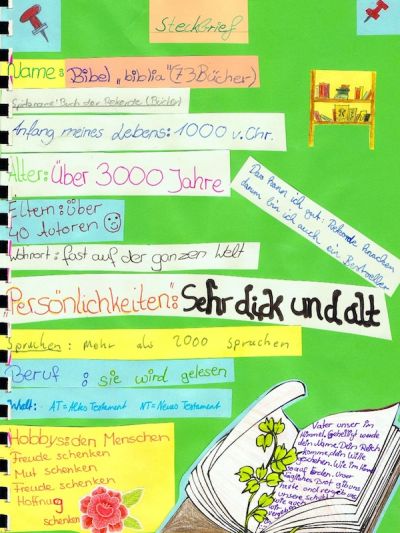 Steckbrief
Name: Bibel „biblia“ (73 Bücher)
Spitzname: Buch der Rekorde (Bücher)
Anfang meines Lebens: 1000 v. Chr.
Alter: Über 3000 Jahre
Das kann ich gut: Rekorde knacken
darum bin ich auch ein Bestseller
Eltern: über
40 Autoren
Wohnort: fast auf der ganzen Welt
„Persönlichkeiten“: Sehr dick und alt
Sprachen: Mehr als 2000 Sprachen
Beruf: sie wird gelesen
Inhalt: AT = Altes Testament NT = Neues Testament
Hobbys: den Menschen
Freude schenken
Mut schenken
Freude schenken
Hoffnug
schenken
Vater unser im
Himmel. Geheiligt werde
dein Name. Dein Reich
komme, dein Wille
geschehen. Wie im Himmel
so auf Erden. Unser
tägliches Brot gib uns
heute und vergib uns
unsere Schuld
wie auch